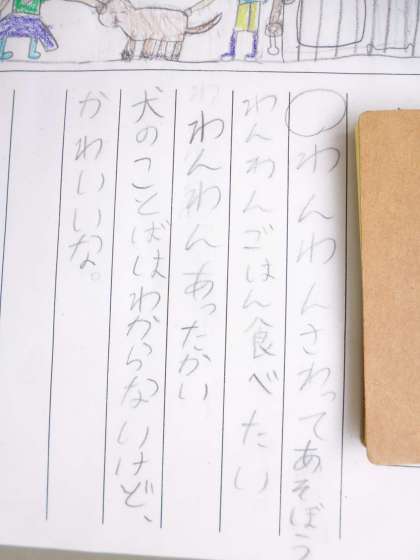 わんわんさわってあそぼう
わんわんごはん食べたい
わんわんあったかい
犬のことばはわからないけど、
かわいいな。